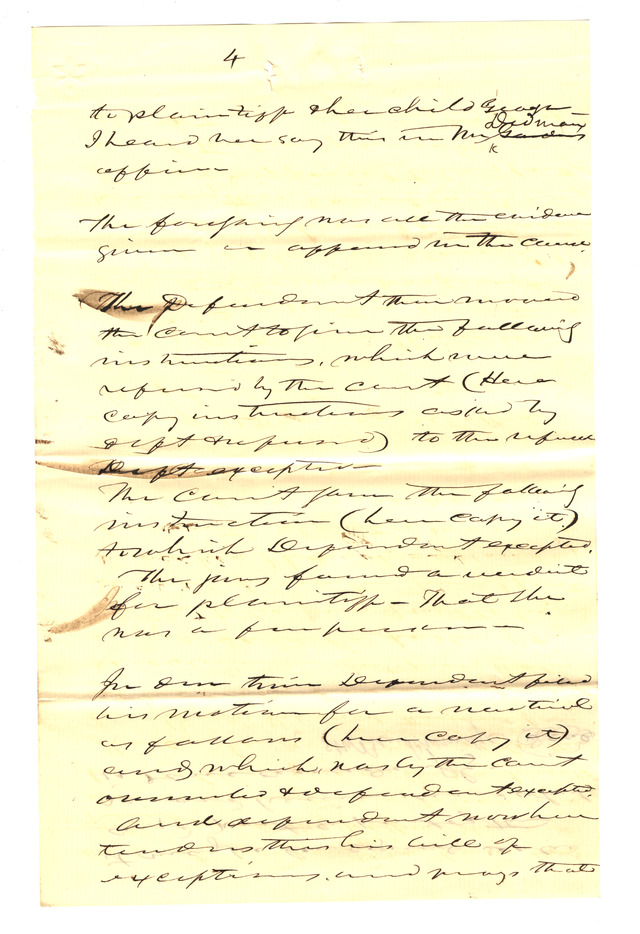 4
to plaintiff & her child George
I heard her say this in Mr Dedman
office
The foregoing was all the evidence
given or offered in the cause.
The Defendant then moved
the court to give the following
instructions, which were
refused by the court (Here
copy instructions asked by
deft & refused) to the refusal
Deft excepted
The court gave the following
instruction (here copy it)
to which Defendant excepted.
The jury found a verdict
for plaintiff - That she
was a free person -
In due time Defendant filed
his motion for a new trial
as follows (here copy it)
and which was by the court
overruled & defendant excepted.
And defendant now here
tenders this his bill of
exceptions. and prays that